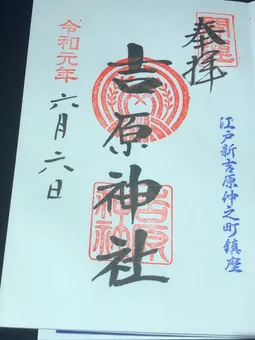 奉拝
江戸新吉原仲之町鎮座
吉原神社
令和元年
六月六日